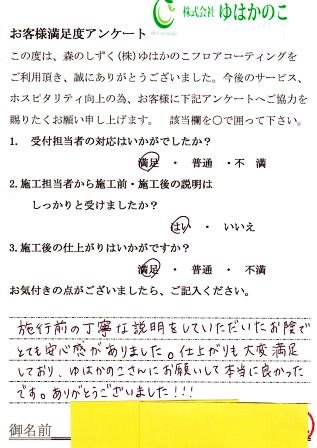 株式会社 ゆはかのこ
お客様満足度アンケート
この度は、森のしずく(株)ゆはかのこフロアコーティングを
ご利用頂き、誠にありがとうございました。今後のサービス、
ホスピタリティ向上の為、お客様に下記アンケートへご協力を
賜りたくお願い申し上げます。 該当欄を〇で囲って下さい。
1. 受付担当者の対応はいかがでしたか?
満足 ・ 普通 ・不 満
2.施工担当者から施工前・施工後の説明は
しっかりと受けましたか?
はい ・ いいえ
3.施工後の仕上がりはいかがですか?
満足 ・ 普通 ・ 不満
お気付きの点がございましたら、ご記入ください。
施行前の丁寧な説明をしていただいたお陰で
とても安心感がありました。仕上がりも大変満足
しており、ゆはかのこさんにお願いして本当に良かった
です。ありがとうございました!!!
御名前